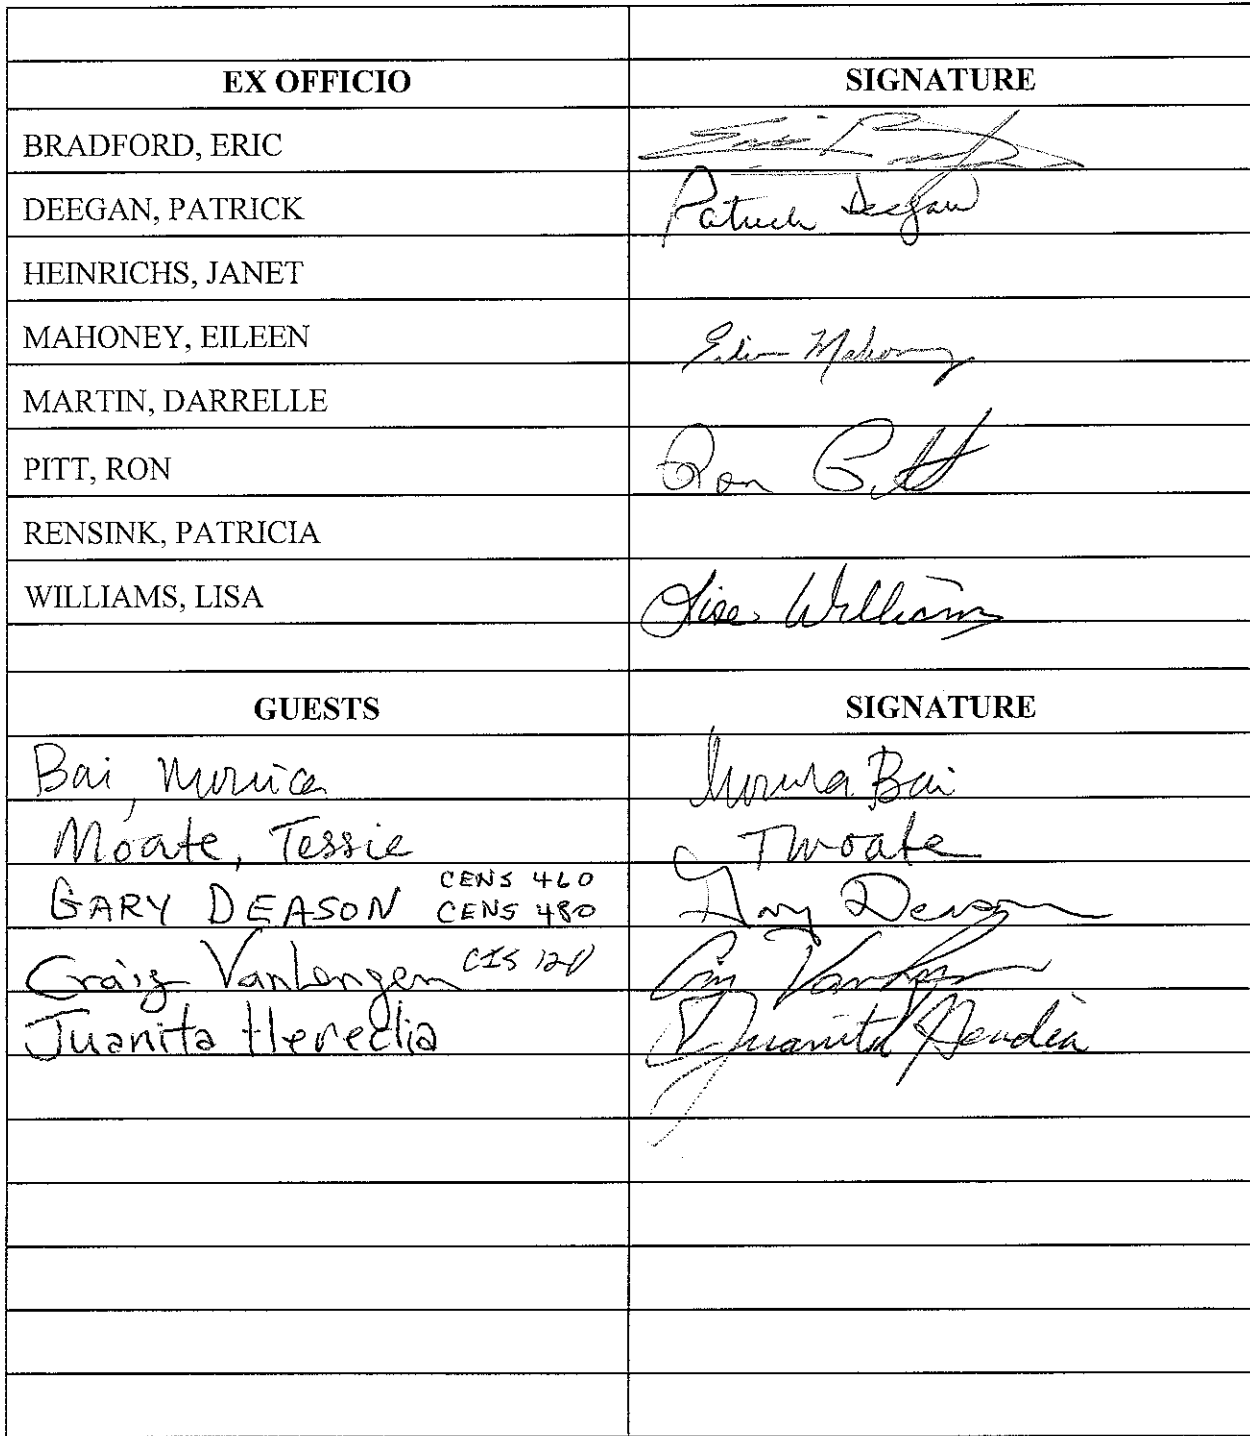 EX OFFICIO SIGNATURE
BRADFORD, ERIC Eric
DEEGAN, PATRICK Patrick Deegan
HEINRICHS, JANET
MAHONEY, EILEEN Eileen Mahoney
MARTIN, DARRELLE
PITT, RON Ron Pitt
RENSINK, PATRICIA
WILLIAMS, LISA Lisa Williams
GUESTS SIGNATURE
Bai, Monica Monica Bai
Moate, Tessie TMoate
GARY DEASON CENS 460 CENS 480 Gary Deason
Craig VanLengen CIS 120 Craig VanLengen
Juanita Heredia Juanita Heredia